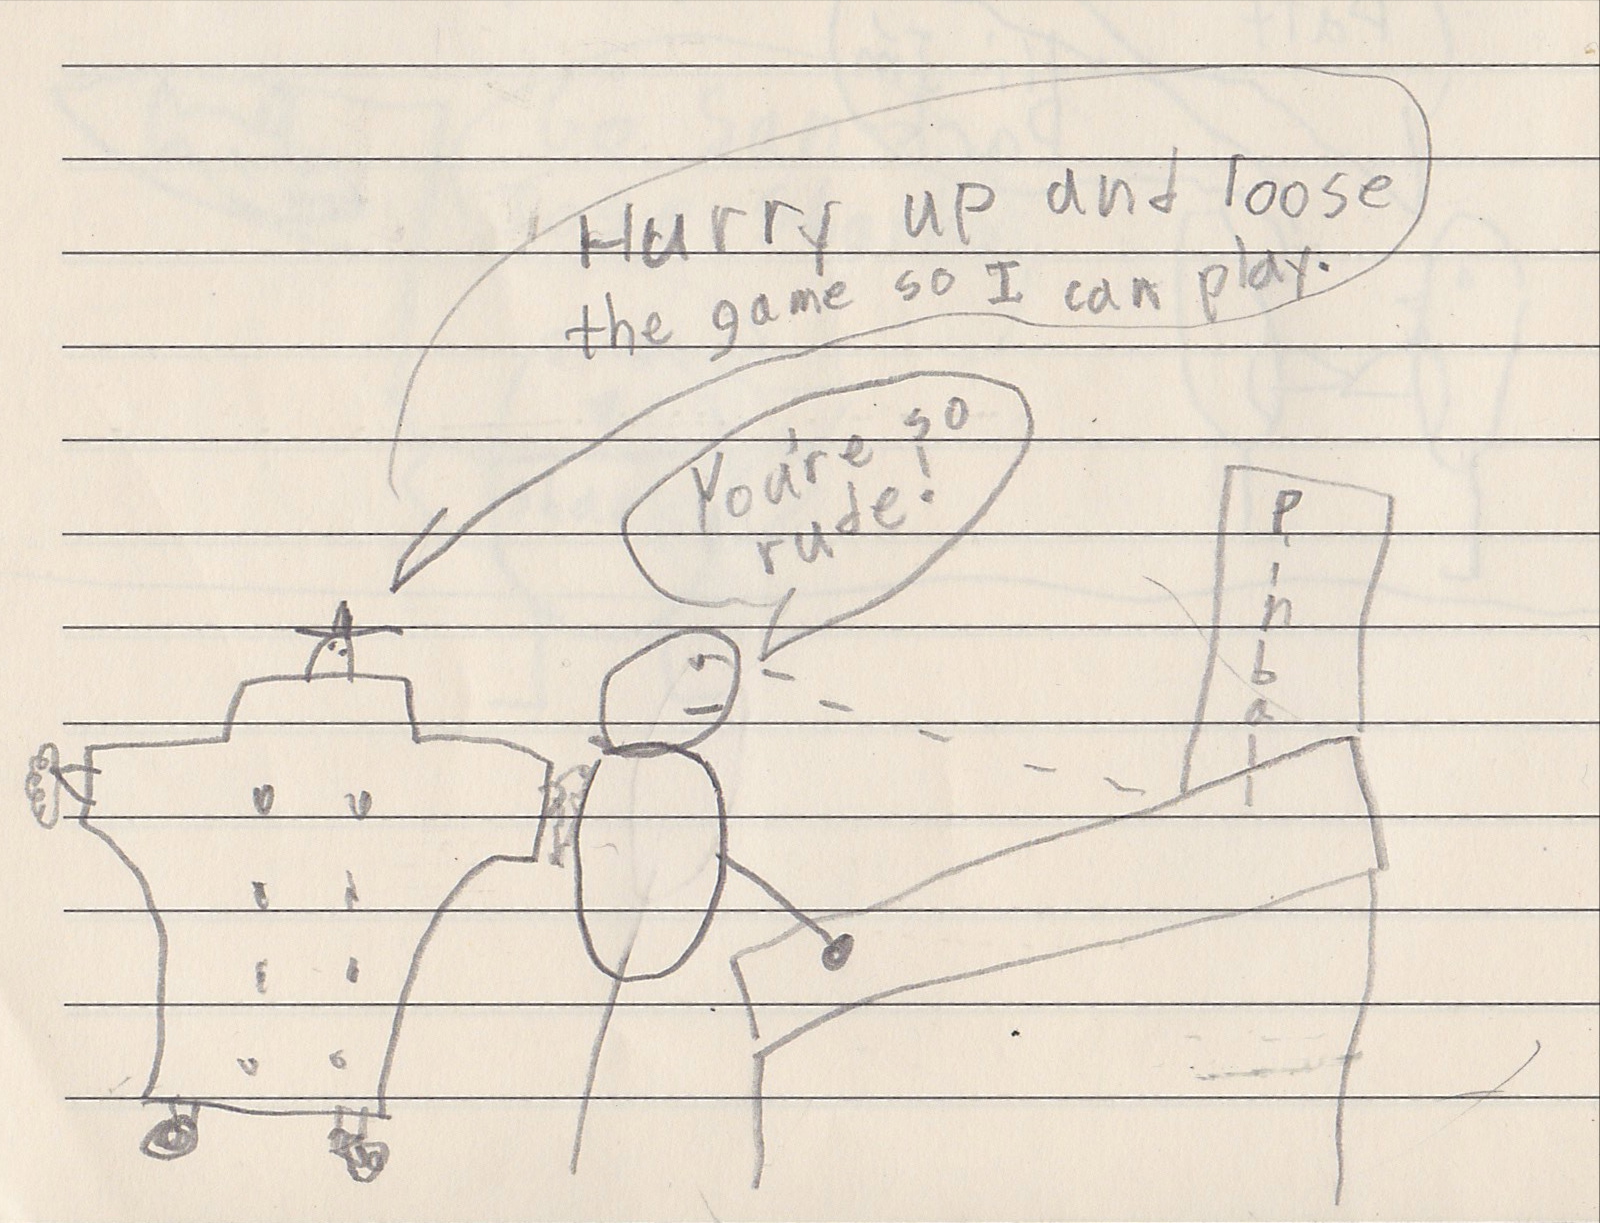 Hurry up and loose
the game so I can play.
You're so
rude!
P
i
n
b
a
l
l